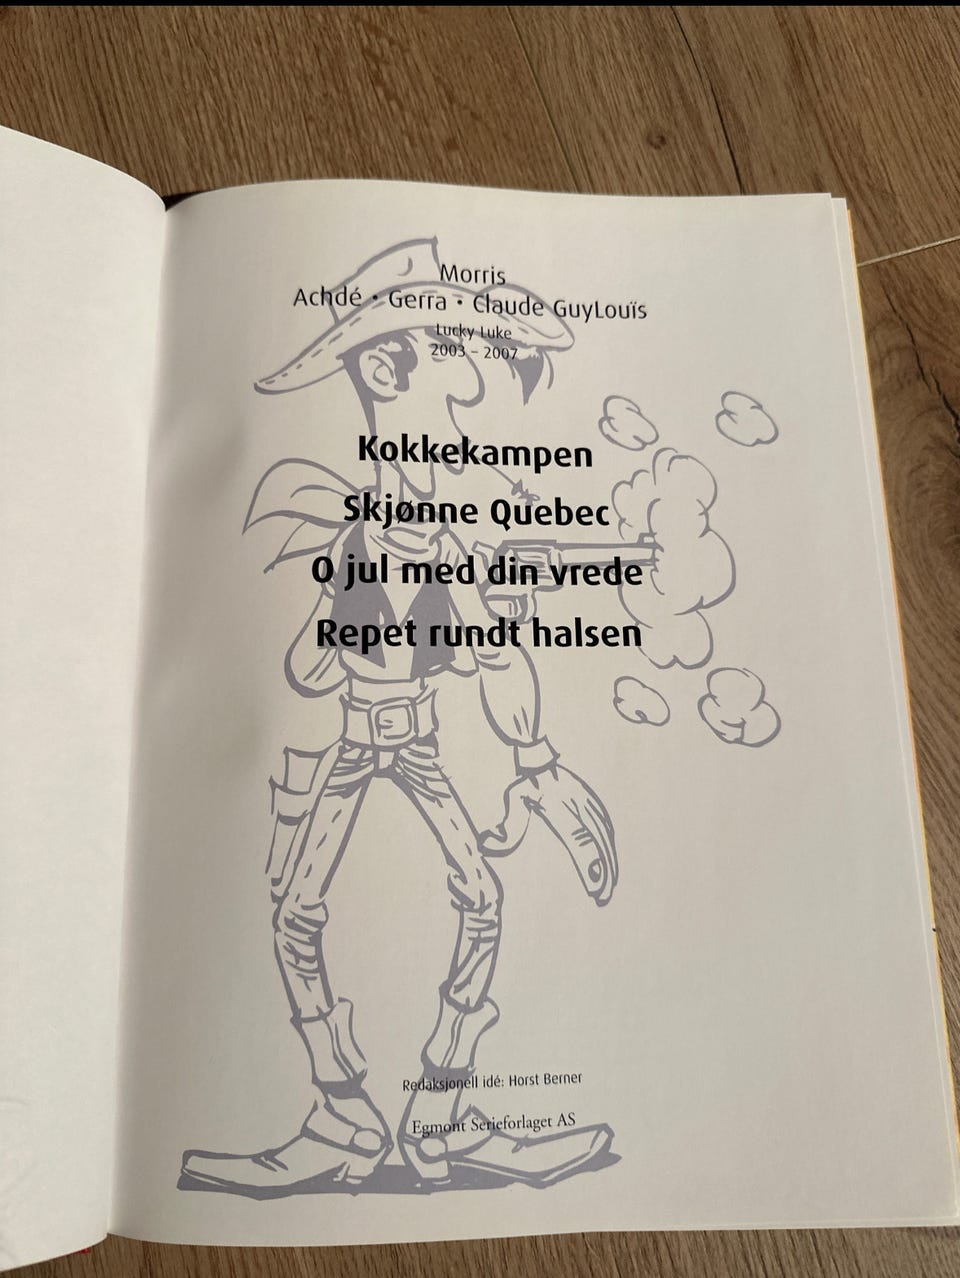 Morris
Achdé • Gerra • Claude GuyLouïs
Lucky Luke
2003 – 2007
Kokkekampen
Skjønne Quebec
O jul med din vrede
Repet rundt halsen
Redaksjonell idé: Horst Berner
Egmont Serieforlaget AS